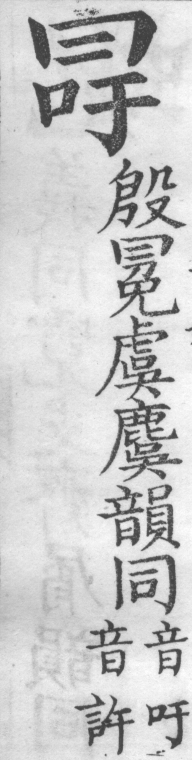 冔
殷冕虞麌韻同
音吁
音許